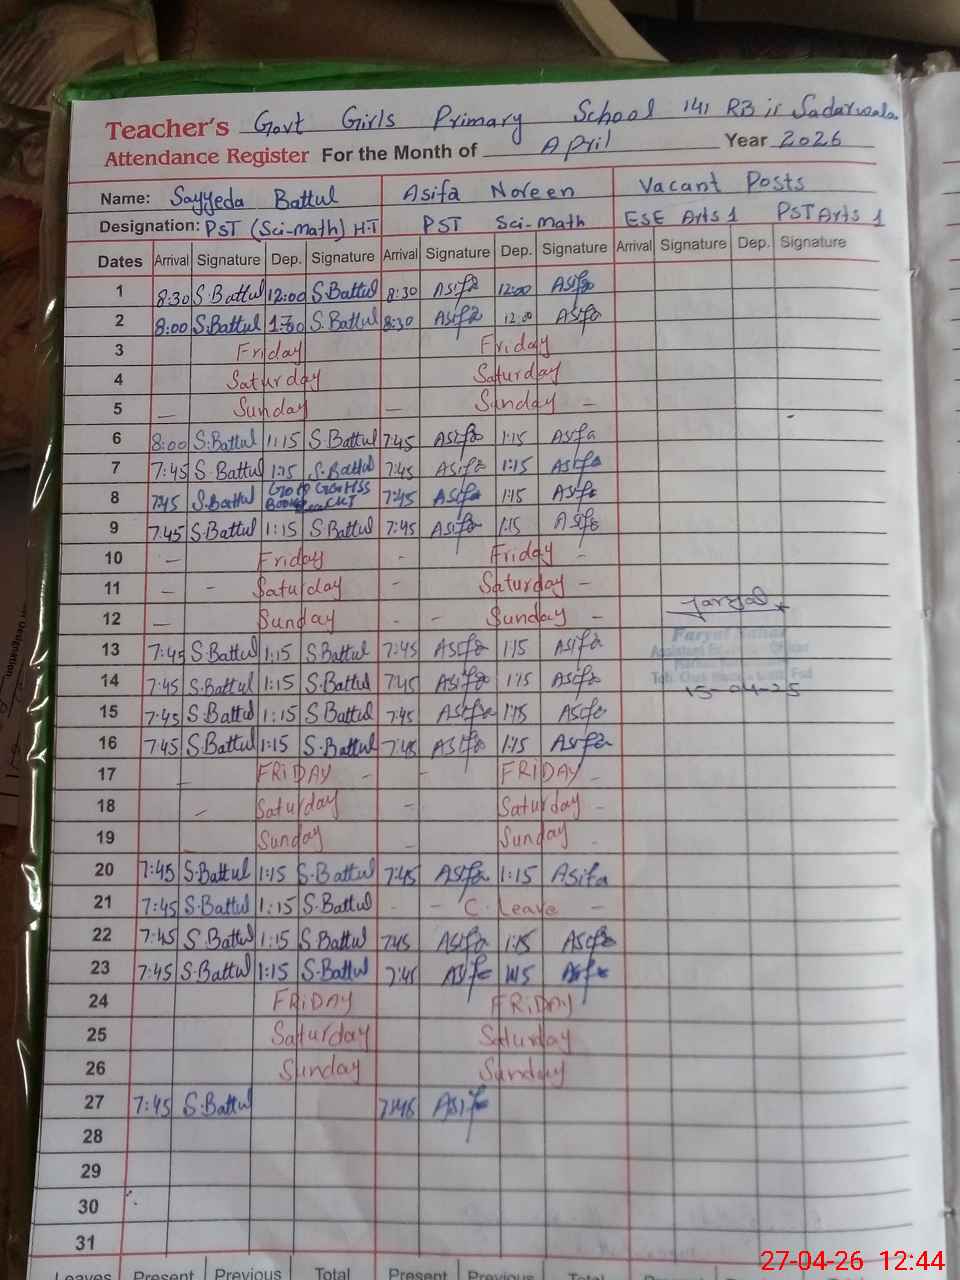 Teacher's Govt Girls Primary School 141 RB ii Sadarwala
Attendance Register For the Month of April Year 2026
Name: Sayyeda Battul Asifa Noreen Vacant Posts
Designation: PST (Sci-math) H.T PST Sci-math ESE Arts 1 PST Arts 1
Dates Arrival Signature Dep. Signature Arrival Signature Dep. Signature Arrival Signature Dep. Signature
1 8:30 S.Battul 12:00 S.Battul 8:30 Asifa 12:00 Asifa
2 8:00 S.Battul S.Battul 8:30 Asifa 12:00 Asifa
3 Friday Friday
4 Saturday Saturday
5 — Sunday — Sunday —
6 8:00 S.Battul 1:15 S.Battul 7:45 Asifa 1:15 Asifa
7 7:45 S.Battul 1:15 S.Battul 7:45 Asifa 1:15 Asifa
8 7:45 S.Battul Go to GGHSS 7:45 Asifa 1:15 Asifa
9 7:45 S.Battul 1:15 S.Battul 7:45 Asifa 1:15 Asifa
10 — Friday - Friday -
11 — - Saturday - Saturday -
12 — Sunday - - Sunday -
13 7:45 S.Battul 1:15 S.Battul 7:45 Asifa 1:15 Asifa
14 7:45 S.Battul 1:15 S.Battul 7:45 Asifa 1:15 Asifa
15-04-25
15 7:45 S.Battul 1:15 S.Battul 7:45 Asifa 1:15 Asifa
16 7:45 S.Battul 1:15 S.Battul 7:45 Asifa 1:15 Asifa
17 - FRIDAY - - FRIDAY -
18 - Saturday - Saturday -
19 - Sunday - Sunday -
20 7:45 S.Battul 1:15 S.Battul 7:45 Asifa 1:15 Asifa
21 7:45 S.Battul 1:15 S.Battul - - C. Leave -
22 7:45 S.Battul 1:15 S.Battul 7:45 Asifa 1:15 Asifa
23 7:45 S.Battul 1:15 S.Battul 7:45 Asifa 1:15 Asifa
24 FRIDAY FRIDAY
25 Saturday Saturday
26 Sunday Sunday
27 7:45 S.Battul 7:45 Asifa
28
29
30
31
Leaves Present Previous Total Present Previous Total Present Previous
27-04-26 12:44